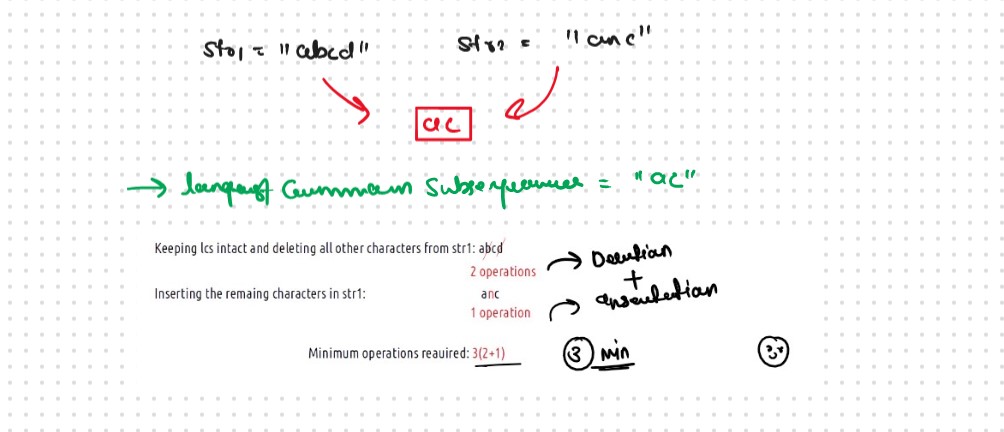 str1 = "abcd" str2 = "anc"
ac
→ longest Common Subsequence = "ac"
Keeping lcs intact and deleting all other characters from str1: abcd
2 operations → Deletion
+
Inserting the remaing characters in str1: anc → insertion
1 operation
Minimum operations reauired: 3(2+1) 3 min